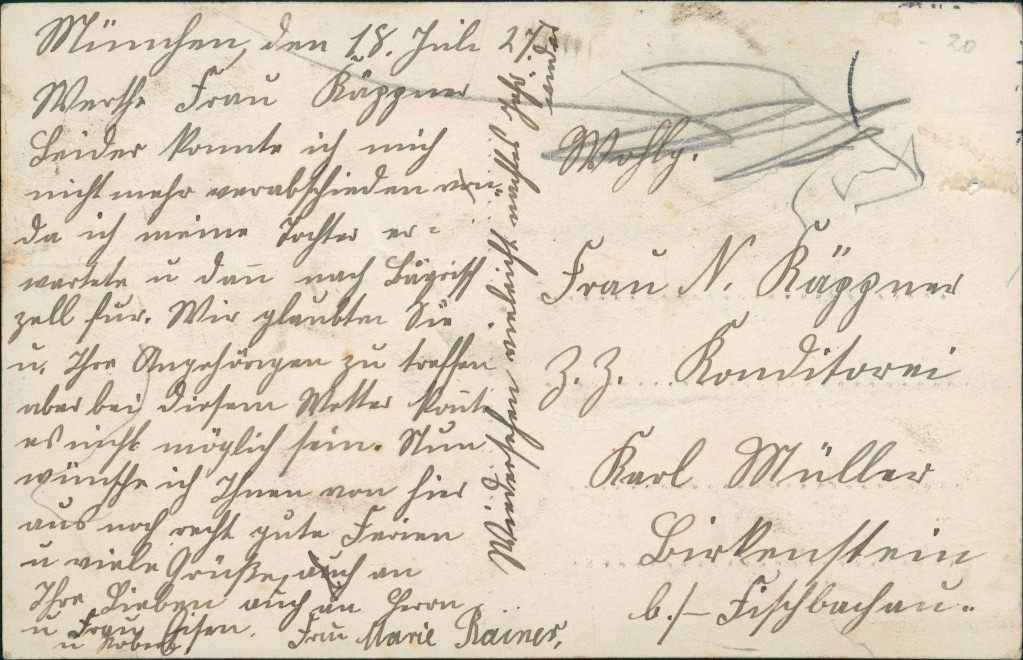 München, den 18. Juli 27.
Werthe Frau Käppner
Leider konnte ich mich
nicht mehr verabschieden
da ich meine Tochter er=
wartete u dann nach Bayrisch
zell fur. Wir glaubten Sie
u. Ihre Angehörigen zu treffen
aber bei diesem Wetter konnt
es nicht möglich sein. Nun
wünsche ich Ihnen von hier
aus noch recht gute Ferien
u viele Grüße, auch an
Ihre Lieben auch an Herrn
u Frau Eisen. Frau Marie Rainer,
u
Wiedersehen vieleicht nächstes Jahr
wieder
Wohlg.
Frau N. Käppner
z. Z. Konditorei
Karl Müller
Birkenstein
b./– Fischbachau.
20